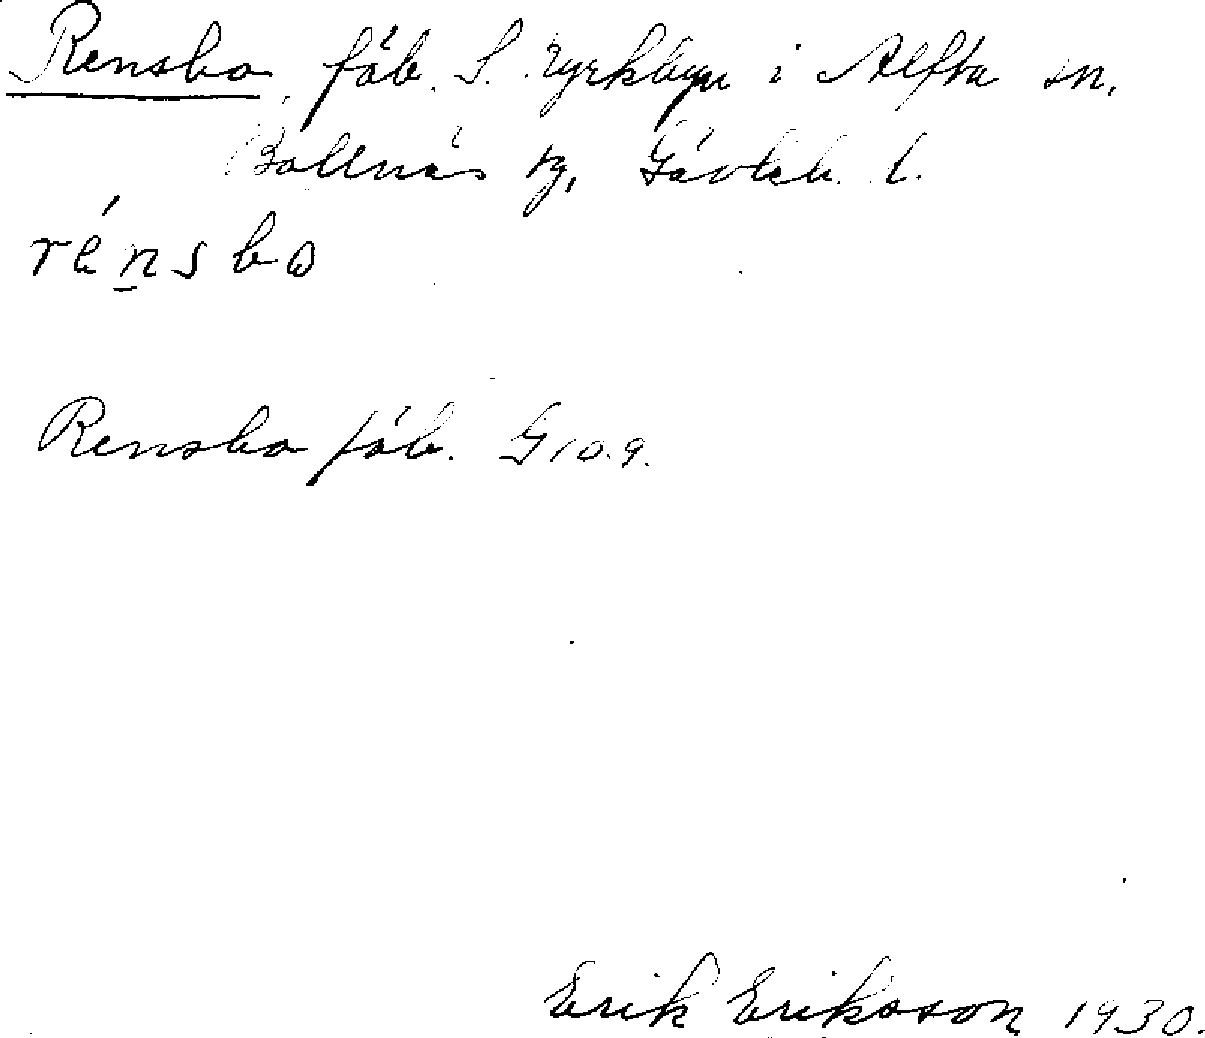 Rensbo fäb. S. Kyrkbyn i Alfta sn.
Bollnäs tg, Gävleb. l.
rénsbo
Rensbo fäb. G 10. 9.
Erik Eriksson 1930.